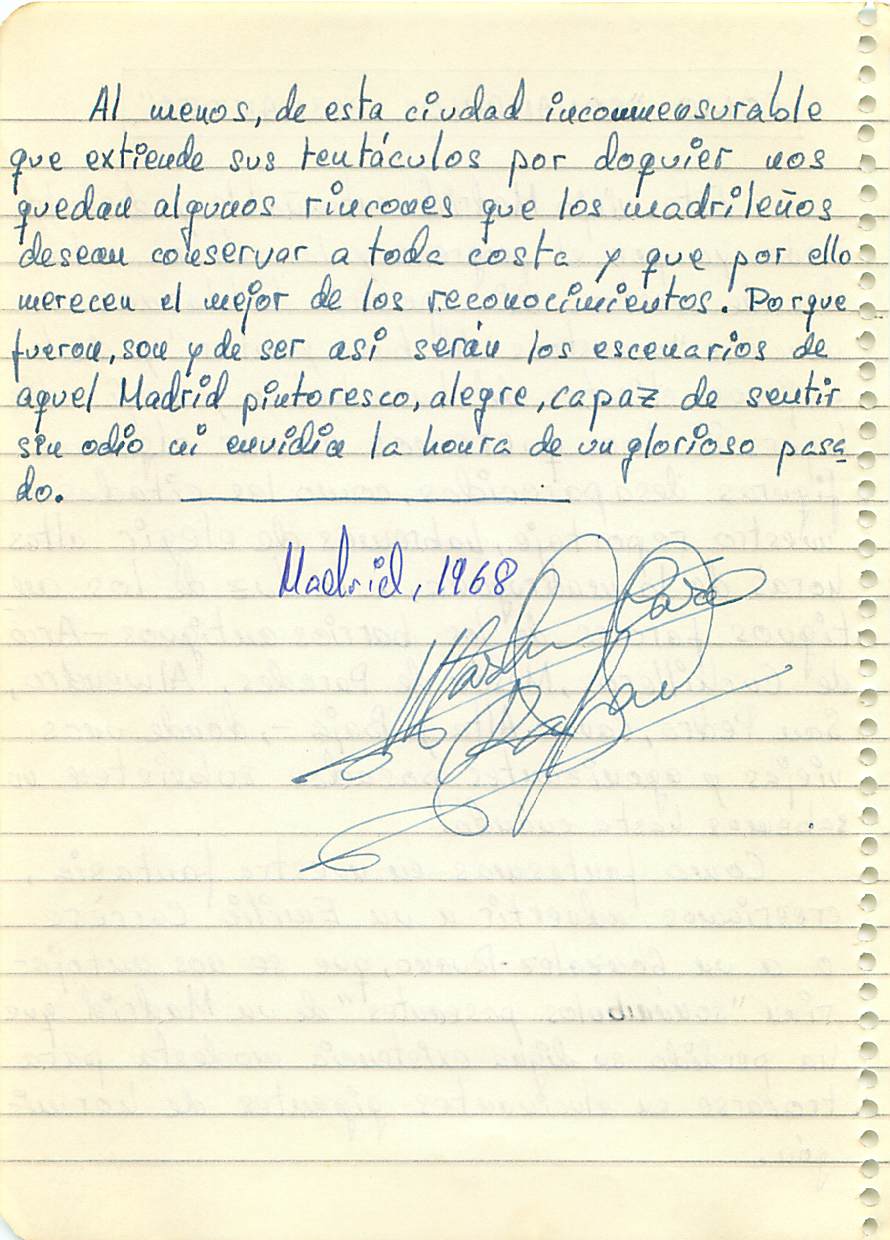 Al menos, de esta ciudad inconmensurable
que extiende sus tentáculos por doquier nos
quedan algunos rincones que los madrileños
desean conservar a toda costa y que por ello
merecen el mejor de los reconocimientos. Porque
fueron, son y de ser así serán los escenarios de
aquel Madrid pintoresco, alegre, capaz de sentir
sin odio ni envidia la honra de un glorioso pasa
do.
Madrid, 1968